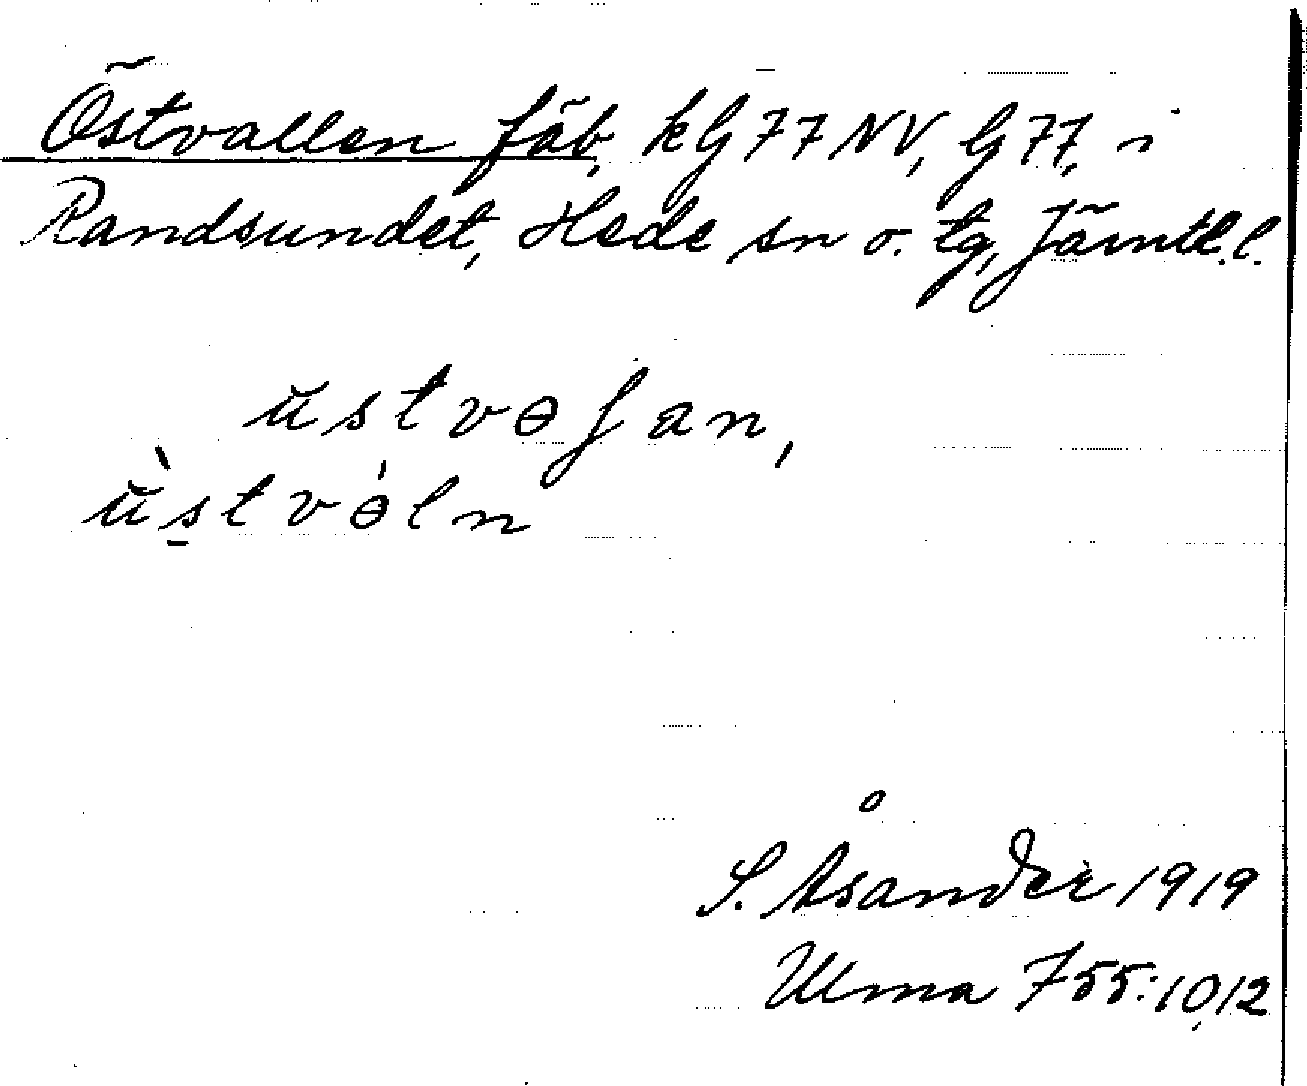 Östvallen fäb, kG77NV, G77, i
Randsundet, Hede sn o. tg, Jämtl.l.
üstvɵſan,
ǜstvɵ̀ln
S. Åsander 1919
Ulma 755:10,12